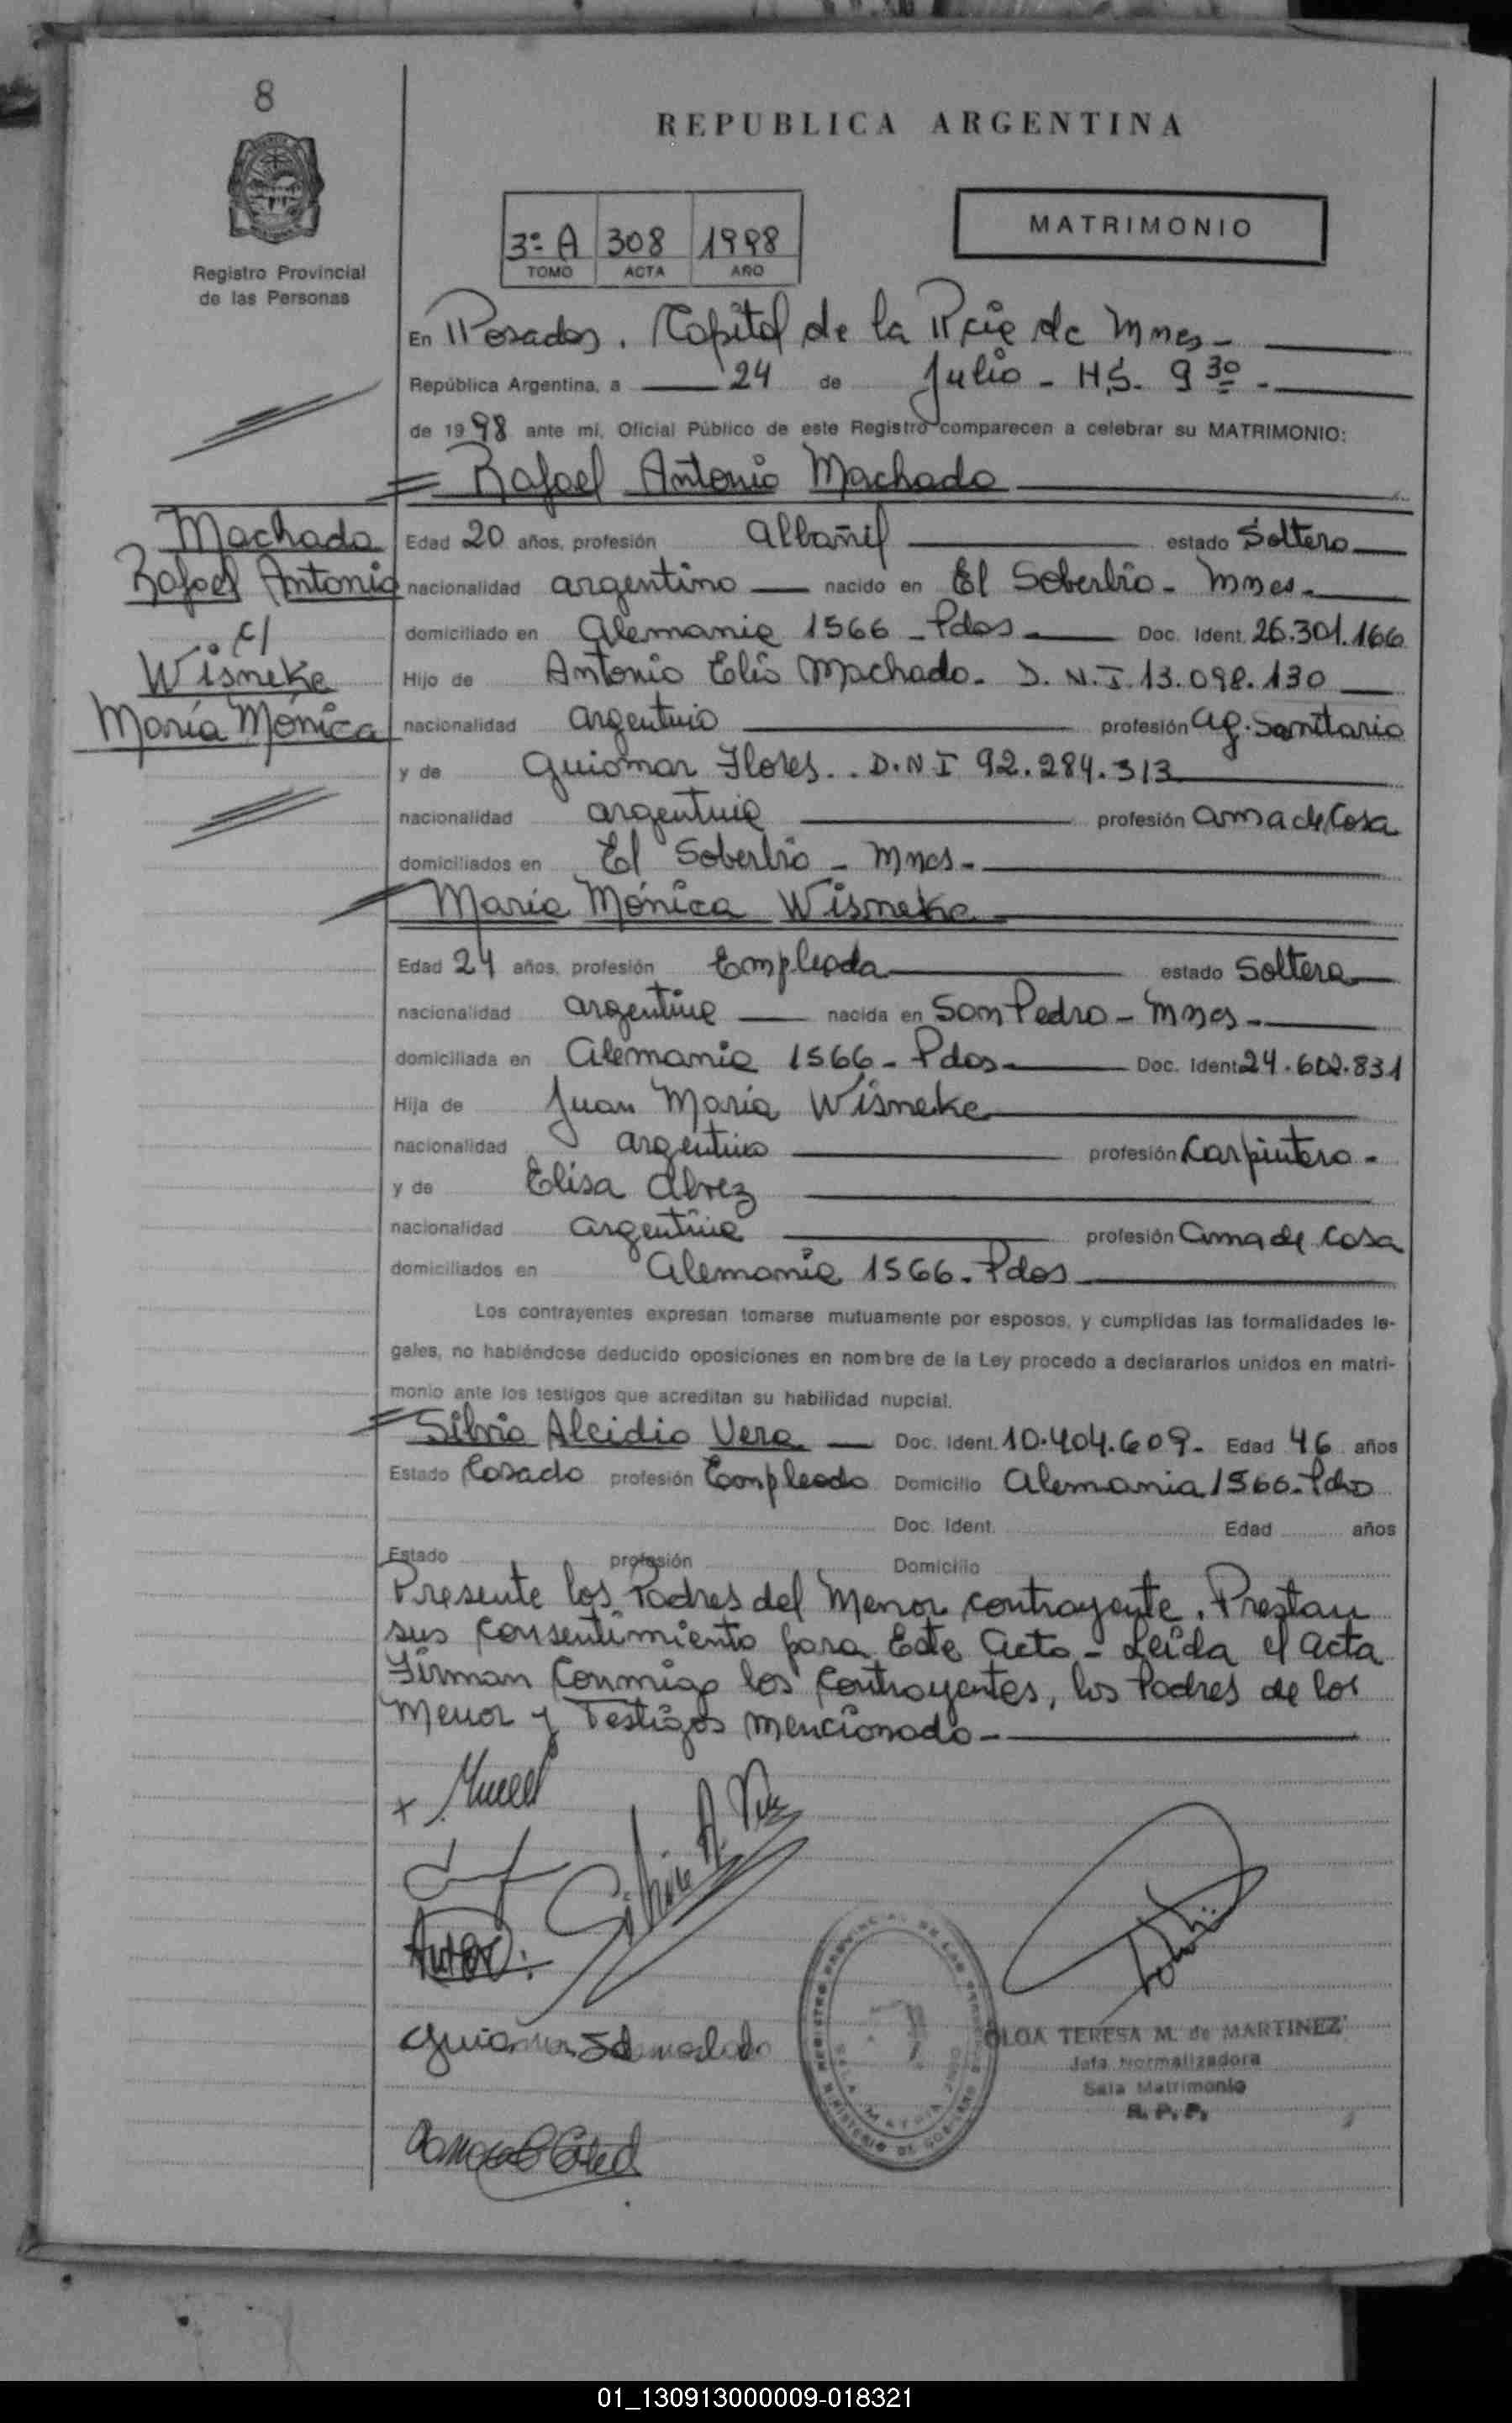 8
REPUBLICA ARGENTINA
MATRIMONIO
3º A 308 1998
TOMO ACTA AÑO
Registro Provincial
de las Personas
En Posadas, Capital de la Pcia de Mnes-
República Argentina, a 24 de Julio - HS. 9 30 -
de 1998 ante mi, Oficial Público de este Registro comparecen a celebrar su MATRIMONIO:
Rafael Antonio Machado
Machado
Rafael Antonio
c/
Wisneke
María Mónica
Edad 20 años, profesión albañil estado Soltero
nacionalidad argentino nacido en El Soberbio - Mnes -
domiciliado en Alemania 1566 - Pdas Doc. Ident. 26.301.166
Hijo de Antonio Elio Machado - D.N.I. 13.098.130
nacionalidad argentino profesión ag. Sanitario
y de Guiomar Flores.. D.N.I 92.284.313
nacionalidad argentina profesión ama de Casa
domiciliados en El Soberbio - Mnes -
María Mónica Wisneke
Edad 24 años, profesión Empleada estado Soltera
nacionalidad argentina nacida en San Pedro - Mnes -
domiciliada en Alemania 1566 - Pdas Doc. Ident 24.602.831
Hija de Juan María Wisneke
nacionalidad argentino profesión Carpintero -
y de Elisa Alvez
nacionalidad argentina profesión ama de casa
domiciliados en Alemania 1566 - Pdas
Los contrayentes expresan tomarse mutuamente por esposos, y cumplidas las formalidades le-
gales, no habiéndose deducido oposiciones en nombre de la Ley procedo a declararlos unidos en matri-
monio ante los testigos que acreditan su habilidad nupcial.
Silvio Alcidio Vera Doc. Ident. 10.404.609 - Edad 46 años
Estado Casado profesión Empleado Domicilio Alemania 1566 - Pdas
Doc. Ident. Edad años
Estado profesión Domicilio
Presente los Padres del Menor contrayente, Prestan
sus consentimiento para Este acto - Leída el acta
Firman Conmigo los Contrayentes, los Padres de los
Menor y Testigos mencionado -
Silvio A. Vera
OLGA TERESA M. de MARTINEZ
Jefa Normalizadora
Sala Matrimonio
R. P. P.
01_130913000009-018321